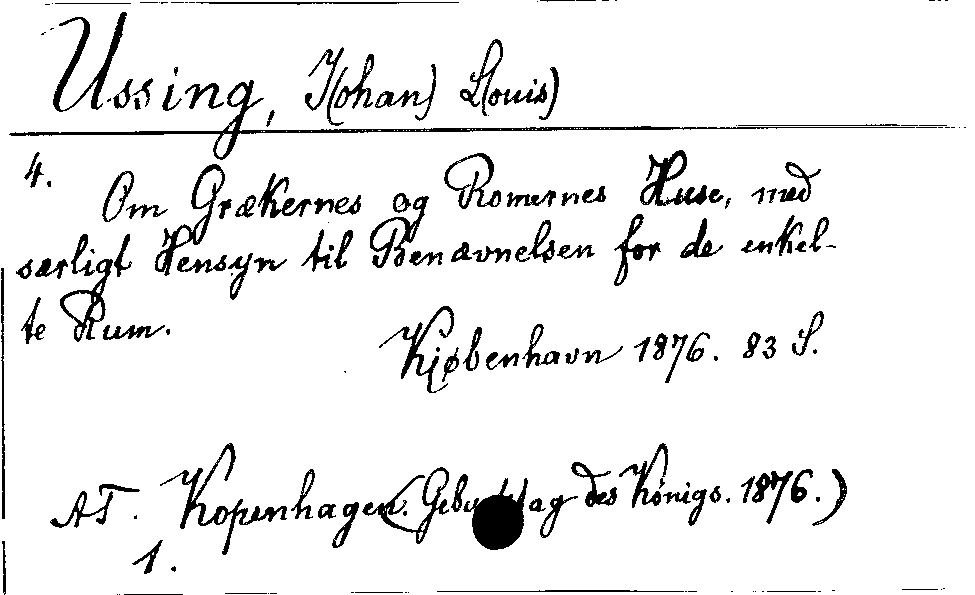 Ussing, J(ohan) L(ouis)
4.
Om Grækernes og Romernes Huse, med
særligt Hensyn til Benævnelsen for de enkel-
te Rum.
Kjøbenhavn 1876. 83 S.
AT. Kopenhagen (Geburtstag des Königs. 1876.)
1.